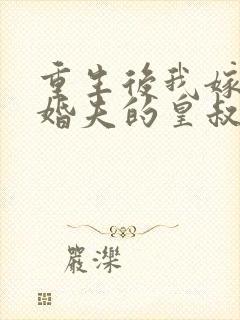 重生後我嫁
婚夫的皇叔
嚴濼